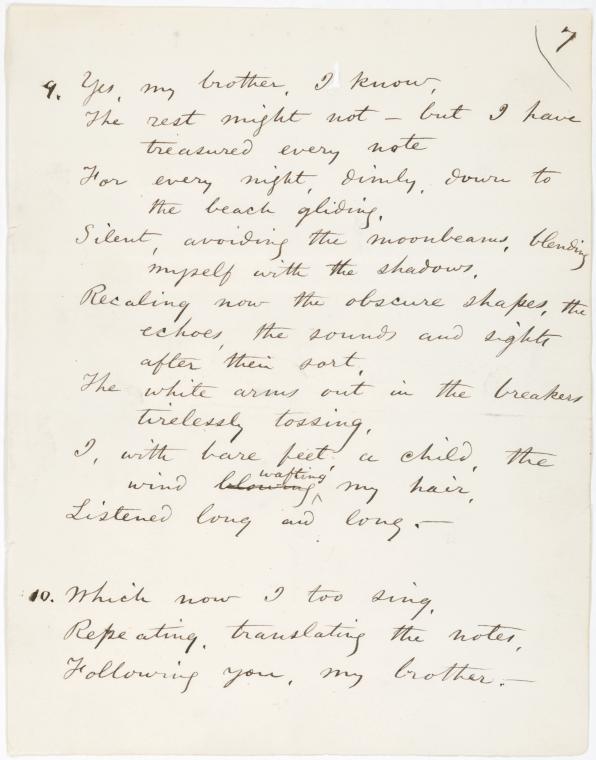 7
9. Yes, my brother, I know,
The rest might not — but I have
treasured every note
For every night, dimly, down to
the beach gliding,
Silent, avoiding the moonbeams, blending
myself with the shadows,
Recaling now the obscure shapes, the
echoes, the sounds and sights
after their sort,
The white arms out in the breakers
tirelessly tossing,
I, with bare feet, a child, the
wafting
wind blowing my hair,
Listened long and long.—
10. Which now I too sing,
Repeating, translating the notes,
Following you, my brother.—